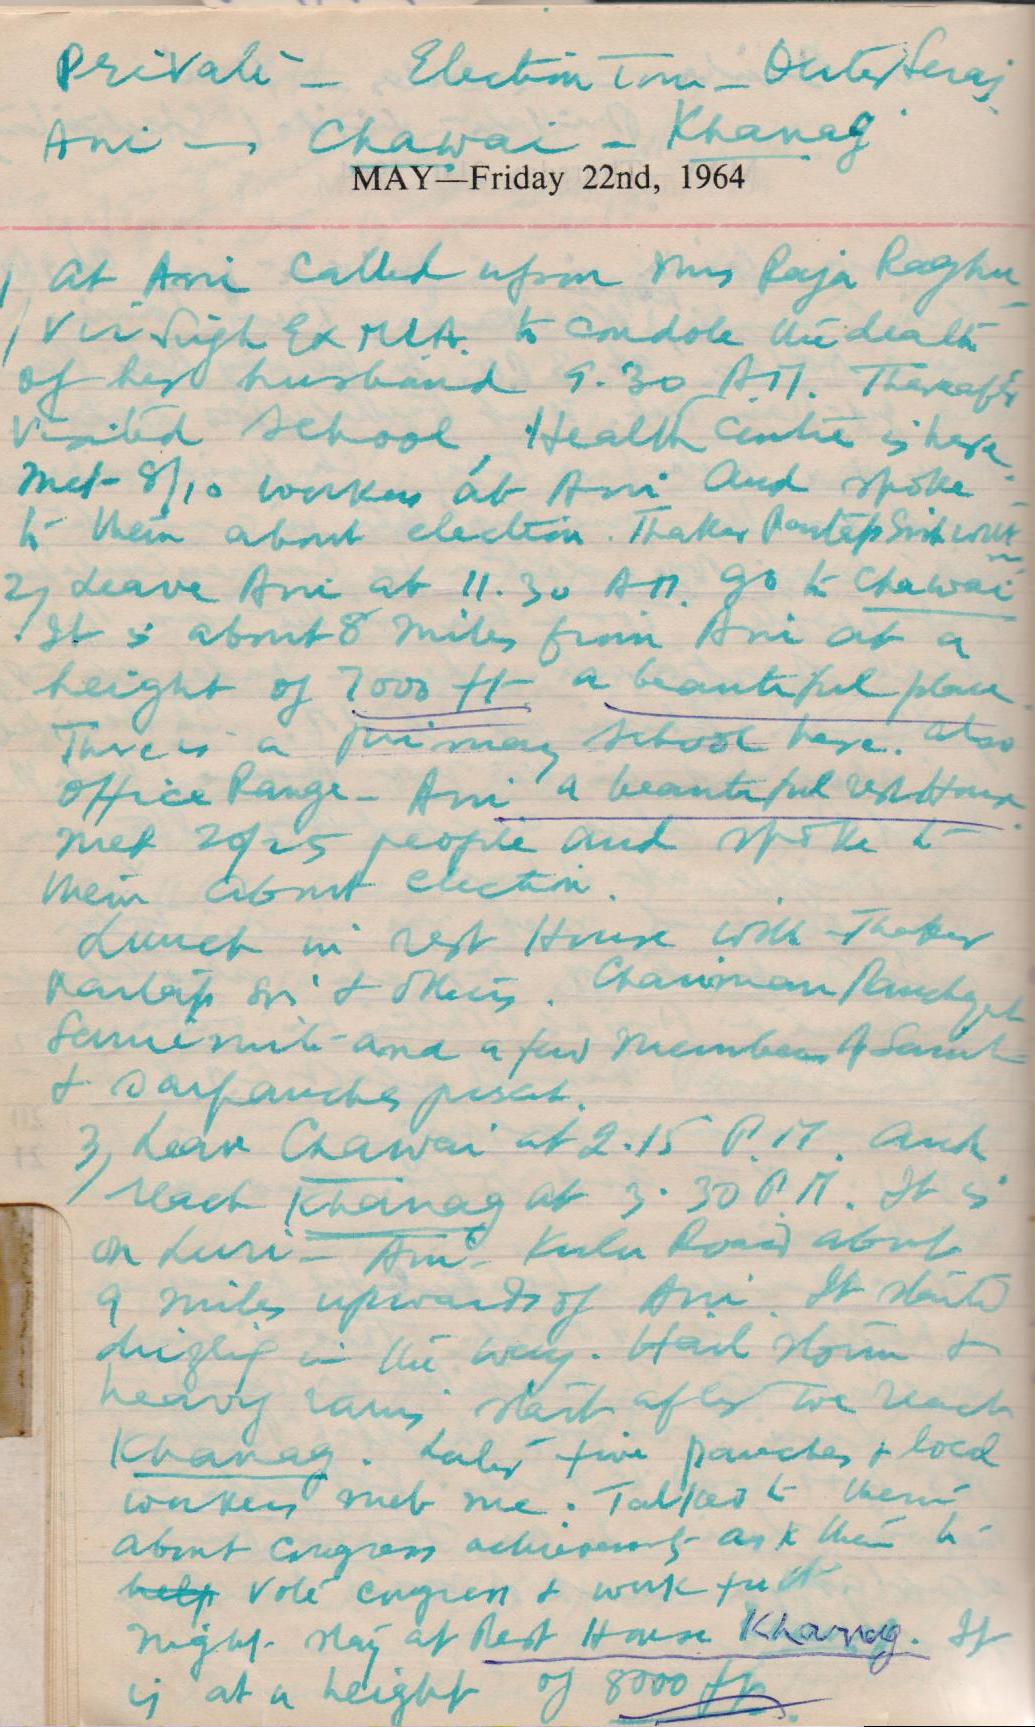 Private - Election Tour - Outer Seraj
Ani - Chawai - Khanag
MAY—Friday 22nd, 1964
1, At Ani called upon Mrs Raja Raghu
Vir Singh Ex M.L.A. to condole the death
of her husband 9.30 A.M. Thereafter
visited School, Health Centre is here
met 8/10 workers at Ani and spoke
to them about election. Thaker Partap
2, Leave Ani at 11.30 A.M. go to Chawai
It is about 8 miles from Ani at a
height of 7000 ft a beautiful place
There is a primary school here. also
office Range - Ani a beautiful rest House
met 20/25 people and spoke to
them about election.
Lunch in rest House with Thaker
Partap & others. Chairman Panchyat
and a few members of
& Sarpanches
3, Leave Chawai at 2.15 P.M. and
reach Khanag at 3.30 P.M. It is
on Luri - Ani - Kulu Road about
9 miles upwards of Ani. It started
drizling in the way. Hail storm &
heavy rains start after we reach
Khanag. Later five panches & local
workers met me. Talked to them
about congress achievements ask them to
help vote congress & work for it
Night stay at Rest House Khanag. It
is at a height of 8000 ft.